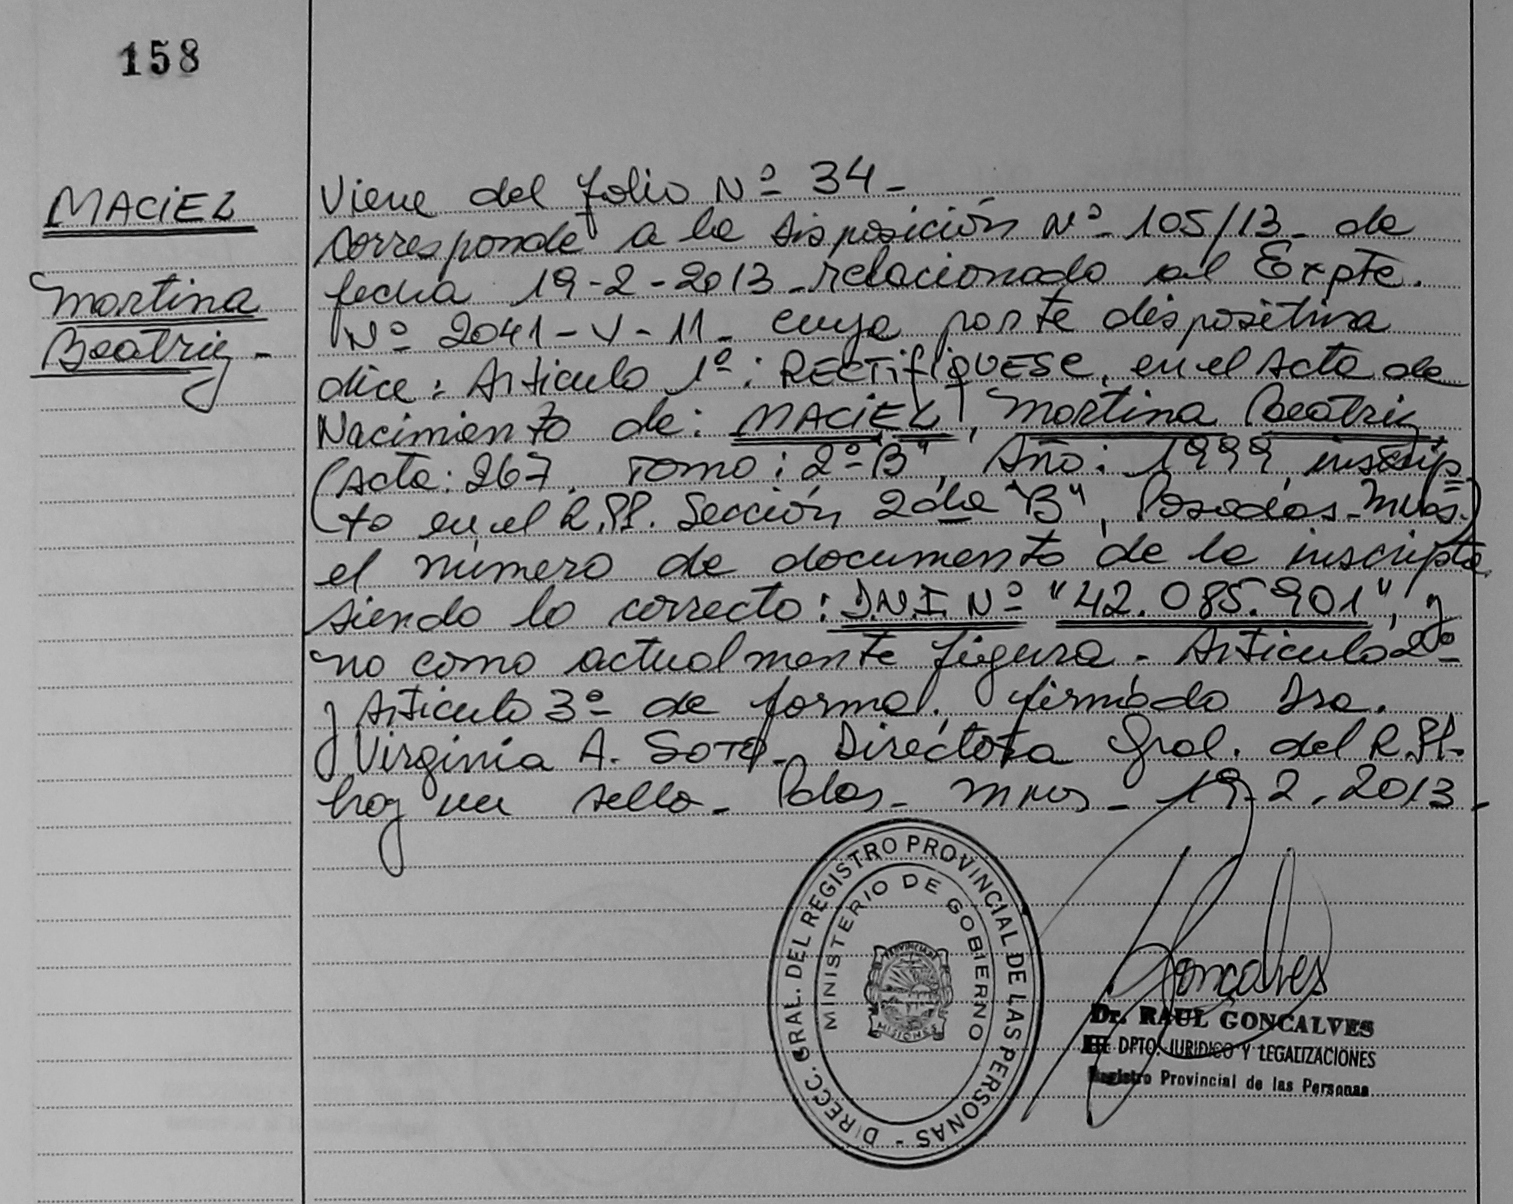 158
MACIEL
Martina
Beatriz -
Viene del folio Nº 34 -
corresponde a la disposición Nº 105/13 - de
fecha 19-2-2013 - relacionado al Expte.
Nº 2041-V-11 - cuya parte dispositiva
dice: Artículo 1º: RECTIFIQUESE, en el Acta de
Nacimiento de: MACIEL, Martina Beatriz
(Acta: 267, Tomo: 2º "B", Año: 1999 inscrip
to en el R.P.P. Sección 2da "B", Posadas-Mnes.)
el número de documento de la inscripta
siendo lo correcto: D.N.I. Nº "42.085.901", y
no como actualmente figura - Artículo 2º
y Artículo 3º de forma. firmado Dra.
Virginia A. Soto - Directora Gral. del R.P.P.
hay un sello - Pdas - Mnes - 19.2.2013 -
DIRECC. GRAL. DEL REGISTRO PROVINCIAL DE LAS PERSONAS -
MINISTERIO DE GOBIERNO
MISIONES
Goncalves
Dr. RAUL GONCALVES
DPTO. JURIDICO Y LEGALIZACIONES
Registro Provincial de las Personas